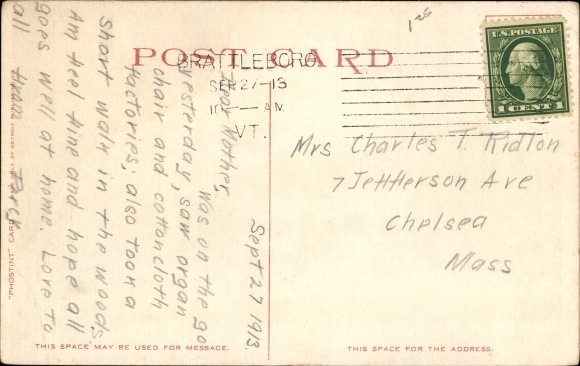 POST CARD
1 25
BRATTLEBORO.
SEP 27-13
10 — AM
VT.
U.S. POSTAGE
1 CENT 1
Mrs Charles T. Ridlon
7 Jefferson Ave
Chelsea
Mass
Sept 27 1913.
Dear Mother,
was on the go
yesterday, saw organ
chair and cotton cloth
factories; also took a
short walk in the woods.
Am feel fine and hope all
goes well at home. Love to
all from Percy
"PHOSTINT" CARD
BY DETROIT
THIS SPACE MAY BE USED FOR MESSAGE.
THIS SPACE FOR THE ADDRESS.